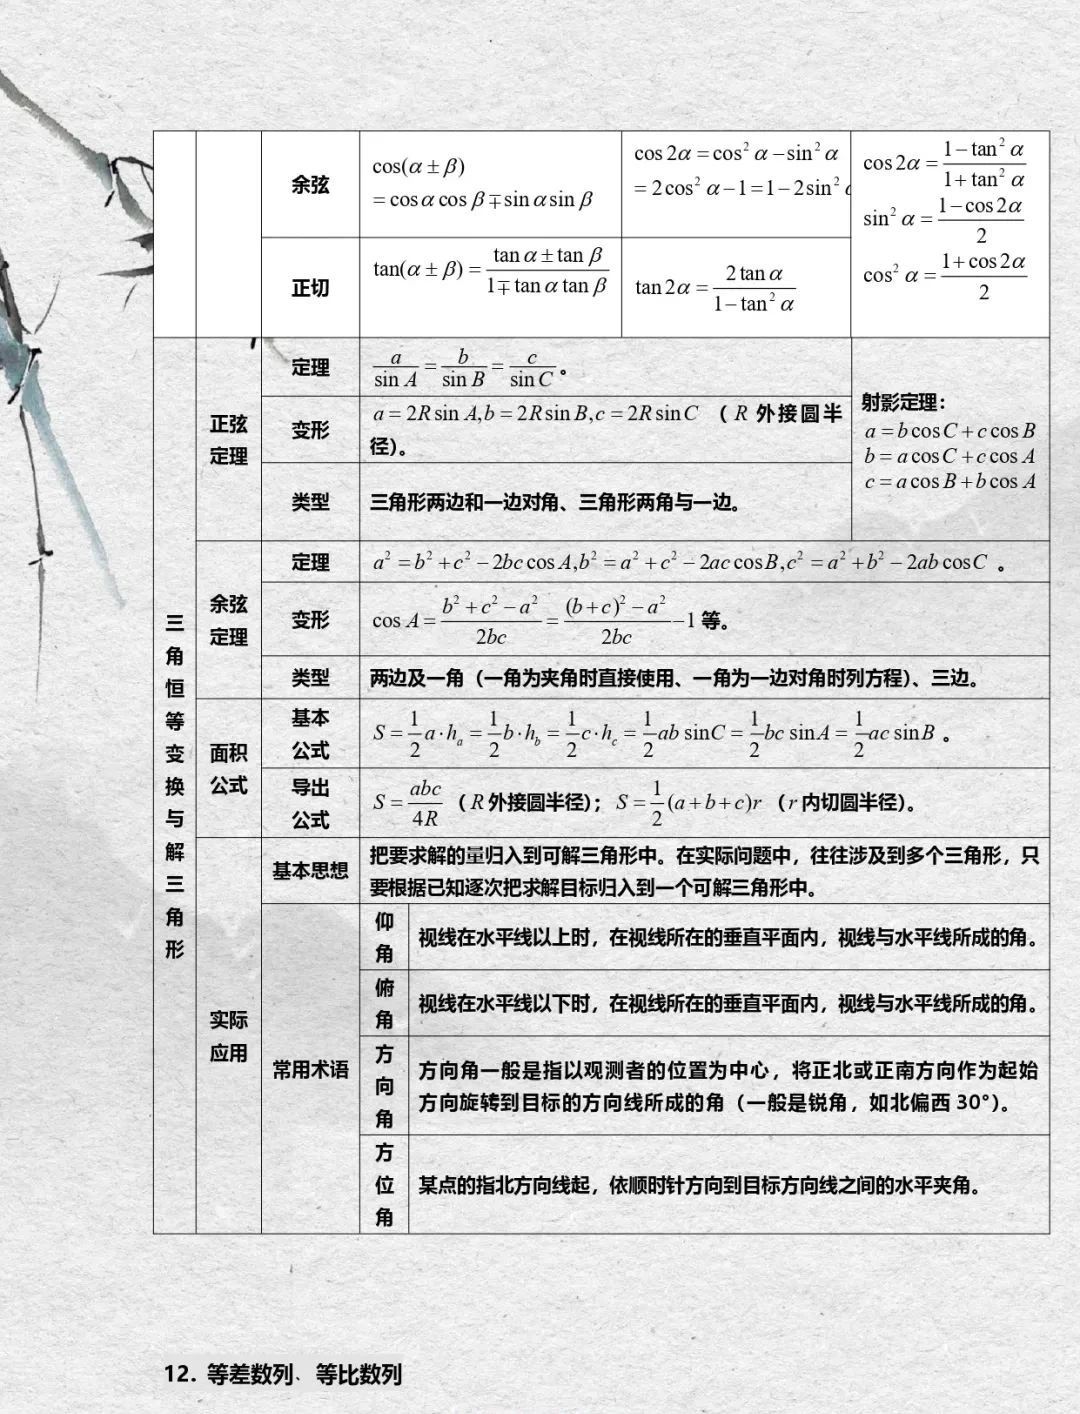 余弦
cos(α ± β)
= cos α cos β ∓ sin α sin β
cos 2α = cos² α − sin² α
= 2cos² α − 1 = 1 − 2sin²
cos 2α = (1 − tan² α)/(1 + tan² α)
sin² α = (1 − cos 2α)/2
cos² α = (1 + cos 2α)/2
正切
tan(α ± β) = (tan α ± tan β)/(1 ∓ tan α tan β)
tan 2α = (2 tan α)/(1 − tan² α)
三角恒等变换与解三角形
正弦
定理
定理
a/sin A = b/sin B = c/sin C 。
变形
a = 2R sin A, b = 2R sin B, c = 2R sin C （ R 外接圆半
径）。
类型
三角形两边和一边对角、三角形两角与一边。
射影定理：
a = b cos C + c cos B
b = a cos C + c cos A
c = a cos B + b cos A
余弦
定理
定理
a² = b² + c² − 2bc cos A, b² = a² + c² − 2ac cos B, c² = a² + b² − 2ab cos C 。
变形
cos A = (b² + c² − a²)/2bc = ((b + c)² − a²)/2bc − 1 等。
类型
两边及一角（一角为夹角时直接使用、一角为一边对角时列方程）、三边。
面积
公式
基本
公式
S = 1/2 a · hₐ = 1/2 b · h_b = 1/2 c · h_c = 1/2 ab sin C = 1/2 bc sin A = 1/2 ac sin B 。
导出
公式
S = abc/4R （ R 外接圆半径）； S = 1/2 (a + b + c)r （ r 内切圆半径）。
实际
应用
基本思想
把要求解的量归入到可解三角形中。在实际问题中，往往涉及到多个三角形，只
要根据已知逐次把求解目标归入到一个可解三角形中。
常用术语
仰角
视线在水平线以上时，在视线所在的垂直平面内，视线与水平线所成的角。
俯角
视线在水平线以下时，在视线所在的垂直平面内，视线与水平线所成的角。
方向角
方向角一般是指以观测者的位置为中心，将正北或正南方向作为起始
方向旋转到目标的方向线所成的角（一般是锐角，如北偏西 30°）。
方位角
某点的指北方向线起，依顺时针方向到目标方向线之间的水平夹角。
12. 等差数列、等比数列